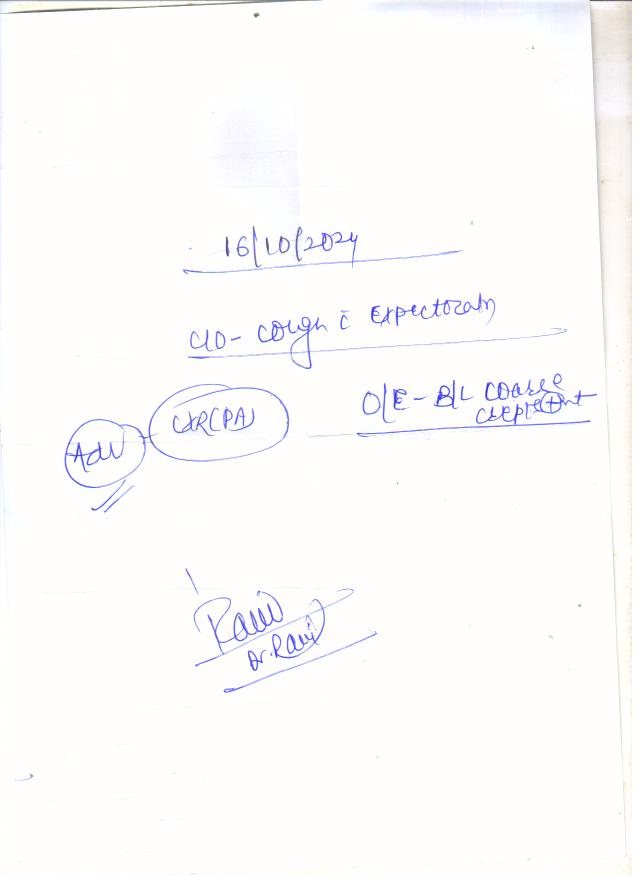 16/10/2024
C/O - Cough c̄ Expectoratn
O/E - B/L Coarse
Crept ⊕nt
Adv - CXR(PA)
Ravi
Dr. Ravi